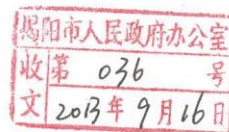 揭阳市人民政府办公室
收文
第 036 号
2013年9月16日